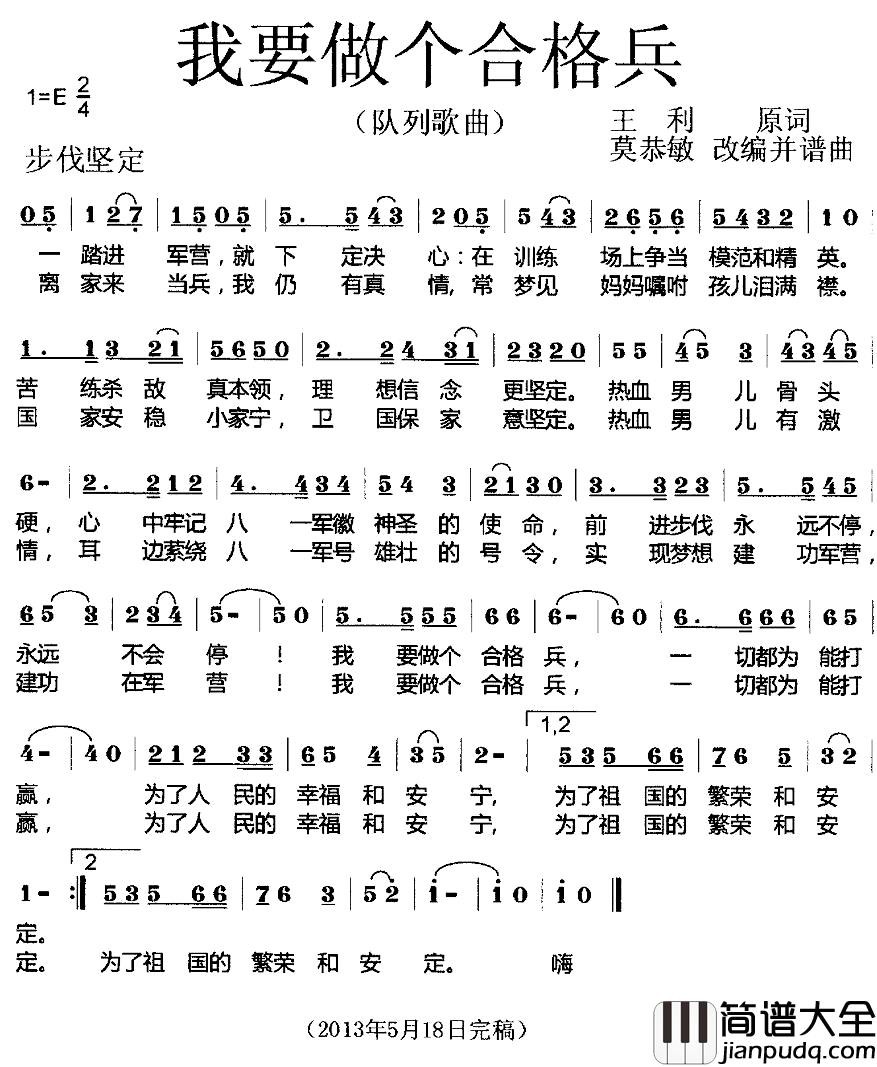 我要做个合格兵
1=E 2/4
（队列歌曲）
王利 原词
步伐坚定
莫恭敏 改编并谱曲
05 | 127 | 1505 | 5. 543 | 205 | 543 | 2656 | 5432 | 10
一 踏进 军营，就 下 定决 心：在 训练 场上争当 模范和精 英。
离 家来 当兵，我 仍 有真 情，常 梦见 妈妈嘱咐 孩儿泪满 襟。
1. 13 21 | 5650 | 2. 24 31 | 2320 | 55 | 45 3 | 4345 |
苦 练杀 敌 真本领， 理 想信 念 更坚定。 热血 男 儿 骨 头
国 家安 稳 小家宁， 卫 国保 家 意坚定。 热血 男 儿 有 激
6- | 2. 212 | 4. 434 | 54 3 | 2130 | 3. 323 | 5. 545 |
硬， 心 中牢记 八 一军徽 神圣 的 使 命， 前 进步伐 永 远不停，
情， 耳 边萦绕 八 一军号 雄壮 的 号 令， 实 现梦想 建 功军营，
65 3 | 234 | 5- | 50 | 5. 555 | 66 | 6- | 60 | 6. 666 | 65 |
永远 不会 停 ！ 我 要做个 合格 兵， 一 切都为 能打
建功 在军 营 ！ 我 要做个 合格 兵， 一 切都为 能打
1,2
4- | 40 | 212 33 | 65 4 | 35 | 2- | 535 66 | 76 5 | 32 |
赢， 为了人 民的 幸福 和 安 宁， 为了祖 国的 繁荣 和 安
赢， 为了人 民的 幸福 和 安 宁， 为了祖 国的 繁荣 和 安
2
1- :| 535 66 | 76 3 | 52 | i- | i0 | i0 ‖
定。
定。 为了祖 国的 繁荣 和 安 定。 嗨
（2013年5月18日完稿）
简谱大全
jianpudq.com